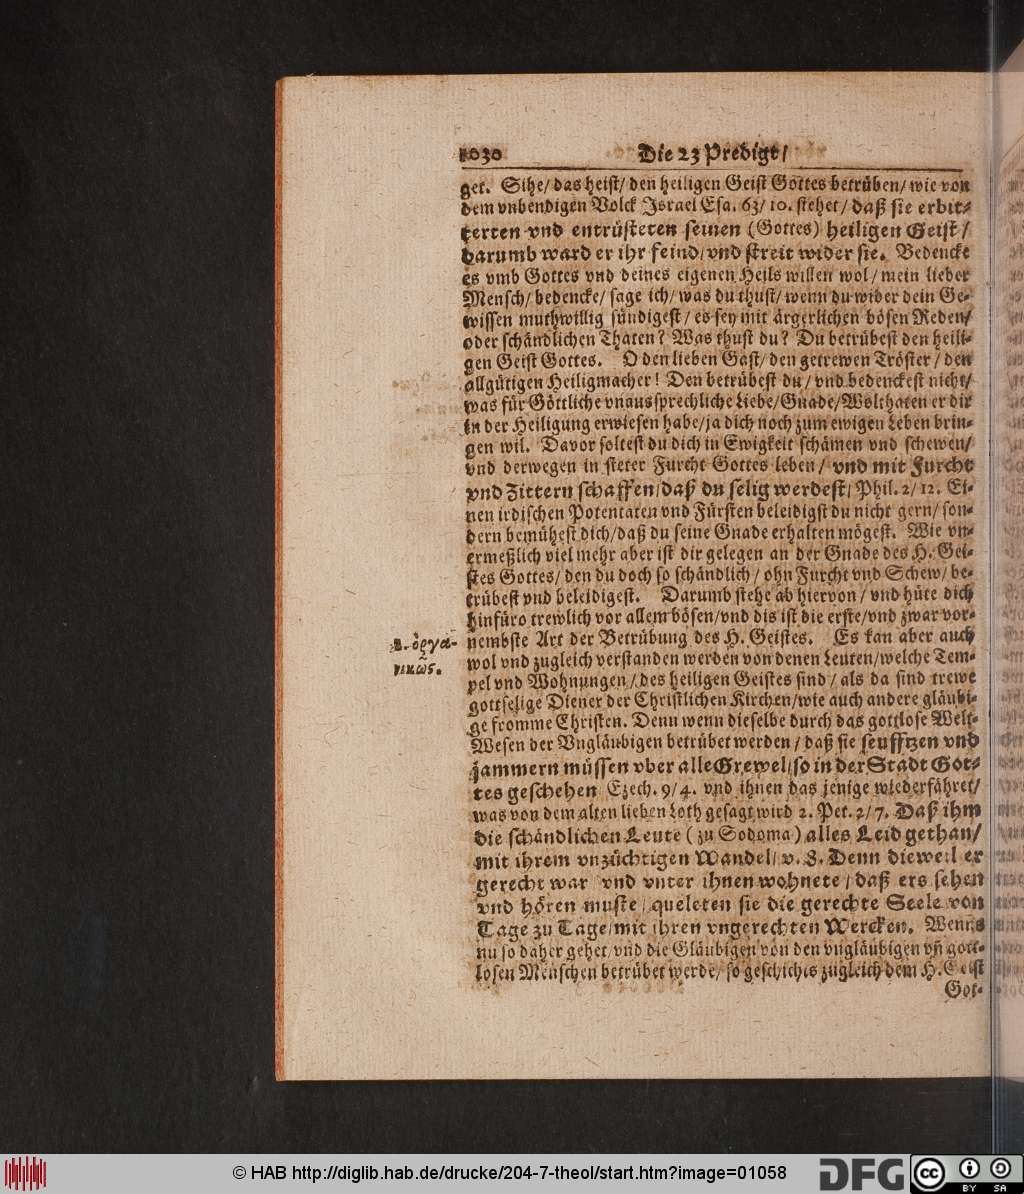 1030 Die 23 Predigt/
get. Sihe/ das heist/ den heiligen Geist Gottes betrüben/ wie von
dem vnbendigen Volck Israel Esa. 63/ 10. stehet/ daß sie erbit-
terten vnd entrüsteten seinen (Gottes) heiligen Geist/
darumb ward er ihr feind/ vnd streit wider sie. Bedencke
es vmb Gottes vnd deines eigenen Heils willen wol/ mein lieber
Mensch/ bedencke/ sage ich/ was du thust/ wenn du wider dein Ge-
wissen muthwillig sündigest/ es sey mit ärgerlichen bösen Reden/
oder schändlichen Thaten? Was thust du? Du betrübest den heili-
gen Geist Gottes. O den lieben Gast/ den getrewen Tröster/ den
allgütigen Heiligmacher! Den betrübest du/ vnd bedenckest nicht/
was für Göttliche vnaussprechliche Liebe/ Gnade/ Wolthaten er dir
in der Heiligung erwiesen habe/ ja dich noch zum ewigen Leben brin-
gen wil. Davor soltest du dich in Ewigkeit schämen vnd schewen/
vnd derwegen in steter Furcht Gottes leben/ vnd mit Furcht
vnd Zittern schaffen/ daß du selig werdest/ Phil. 2/ 12. Ei-
nen irdischen Potentaten vnd Fürsten beleidigst du nicht gern/ son-
dern bemühest dich/ daß du seine Gnade erhalten mögest. Wie vn-
ermeßlich viel mehr aber ist dir gelegen an der Gnade des H. Gei-
stes Gottes/ den du doch so schändlich/ ohn Furcht vnd Schew/ be-
trübest vnd beleidigest. Darumb stehe ab hiervon/ vnd hüte dich
hinfüro trewlich vor allem bösen/ vnd dis ist die erste/ vnd zwar vor-
nembste Art der Betrübung des H. Geistes. Es kan aber auch
2. ὀργα-
νικῶς.
wol vnd zugleich verstanden werden von denen Leuten/ welche Tem-
pel vnd Wohnungen/ des heiligen Geistes sind/ als da sind trewe
gottselige Diener der Christlichen Kirchen/ wie auch andere gläubi-
ge fromme Christen. Denn wenn dieselbe durch das gottlose Welt-
Wesen der Vngläubigen betrübet werden/ daß sie seufftzen vnd
jammern müssen vber alle Grewel/ so in der Stadt Got-
tes geschehen Ezech. 9/ 4. vnd ihnen das jenige wiederfähret/
was von dem alten lieben Loth gesagt wird 2. Pet. 2/ 7. Daß ihm
die schändlichen Leute (zu Sodoma) alles Leid gethan/
mit ihrem vnzüchtigen Wandel/ v. 8. Denn dieweil er
gerecht war vnd vnter ihnen wohnete/ daß ers sehen
vnd hören muste/ queleten sie die gerechte Seele von
Tage zu Tage/ mit ihren vngerechten Wercken. Wenns
nu so daher gehet/ vnd die Gläubigen von den vngläubigen vñ gott-
losen Menschen betrübet werde/ so geschichts zugleich dem H. Geist
Got-
© HAB http://diglib.hab.de/drucke/204-7-theol/start.htm?image=01058
DFG
cc BY SA